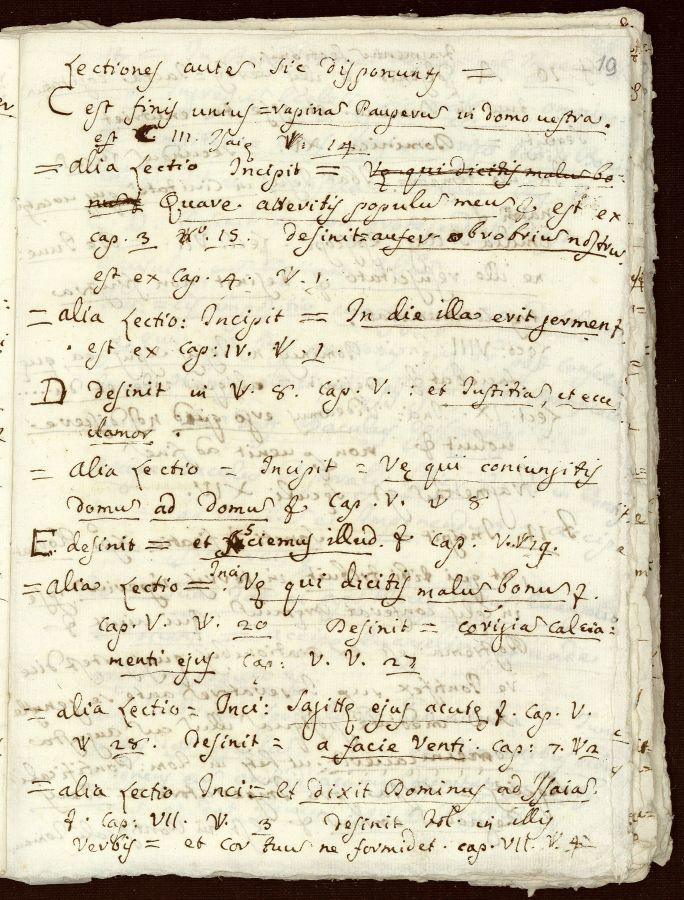 19
Lectiones aute sic disponunt =
C est finis unius = rapina Pauperu in domo vestra.
est C III. Isaię V. 14
= alia Lectio Incipit = Vę qui dicitis malu bo-
Quare atteritis populu meu & est ex
cap. 3 15. desinit = aufer obrobriu nostru
est ex Cap. 4. V. 1
= alia Lectio: Incipit = In die illa erit germen &.
est ex Cap: IV. V. 1
D desinit in V. 8. Cap. V. : et Iustitia, et ecce
clamor.
= alia Lectio = Incipit = Vę qui coniungitis
domu ad domu & Cap. V. V 8
E desinit = et sciemus illud. & Cap: V. V 19.
= alia Lectio = Inci Vę qui dicitis malu bonu &.
Cap. V. V. 20 Desinit = corigia calcia:
menti ejus Cap: V. V. 27
= alia Lectio = Inci: Sagittę ejus acutę &. Cap. V.
V 28. Desinit = a facie Venti. Cap: 7. V 2
= alia Lectio Inci = et dixit Dominus ad Isaia.
&. Cap: VII. V. 3 desinit in illis
verbis = et cor tuu ne formidet. cap. VII. V. 4